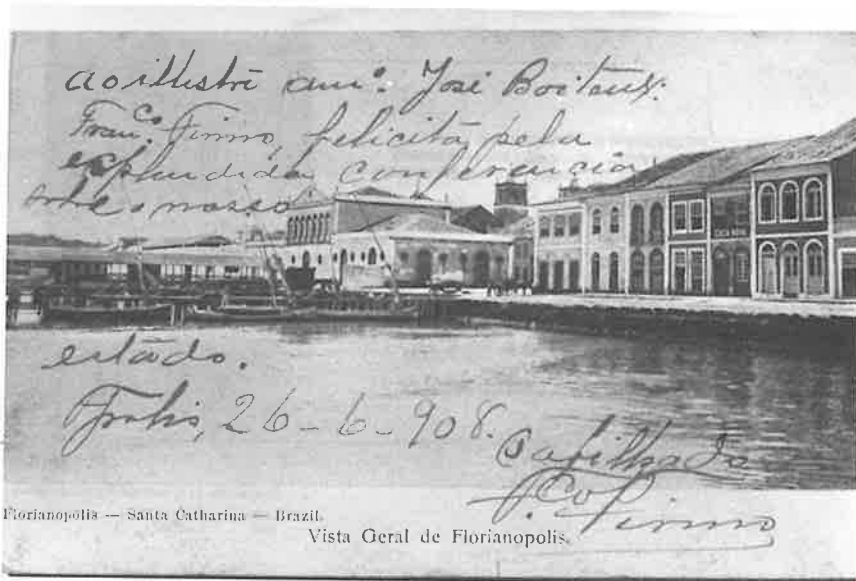 ao illustre am.º José Boiteux.
Fran.co Firmo, felicita pela
explendida conferencia
sobre o nosso
CASA NOVA
estado.
Fpolis, 26-6-908.
O afilhado
F.co Firmo
Florianopólis — Santa Catharina — Brazil.
Vista Geral de Florianopolis.